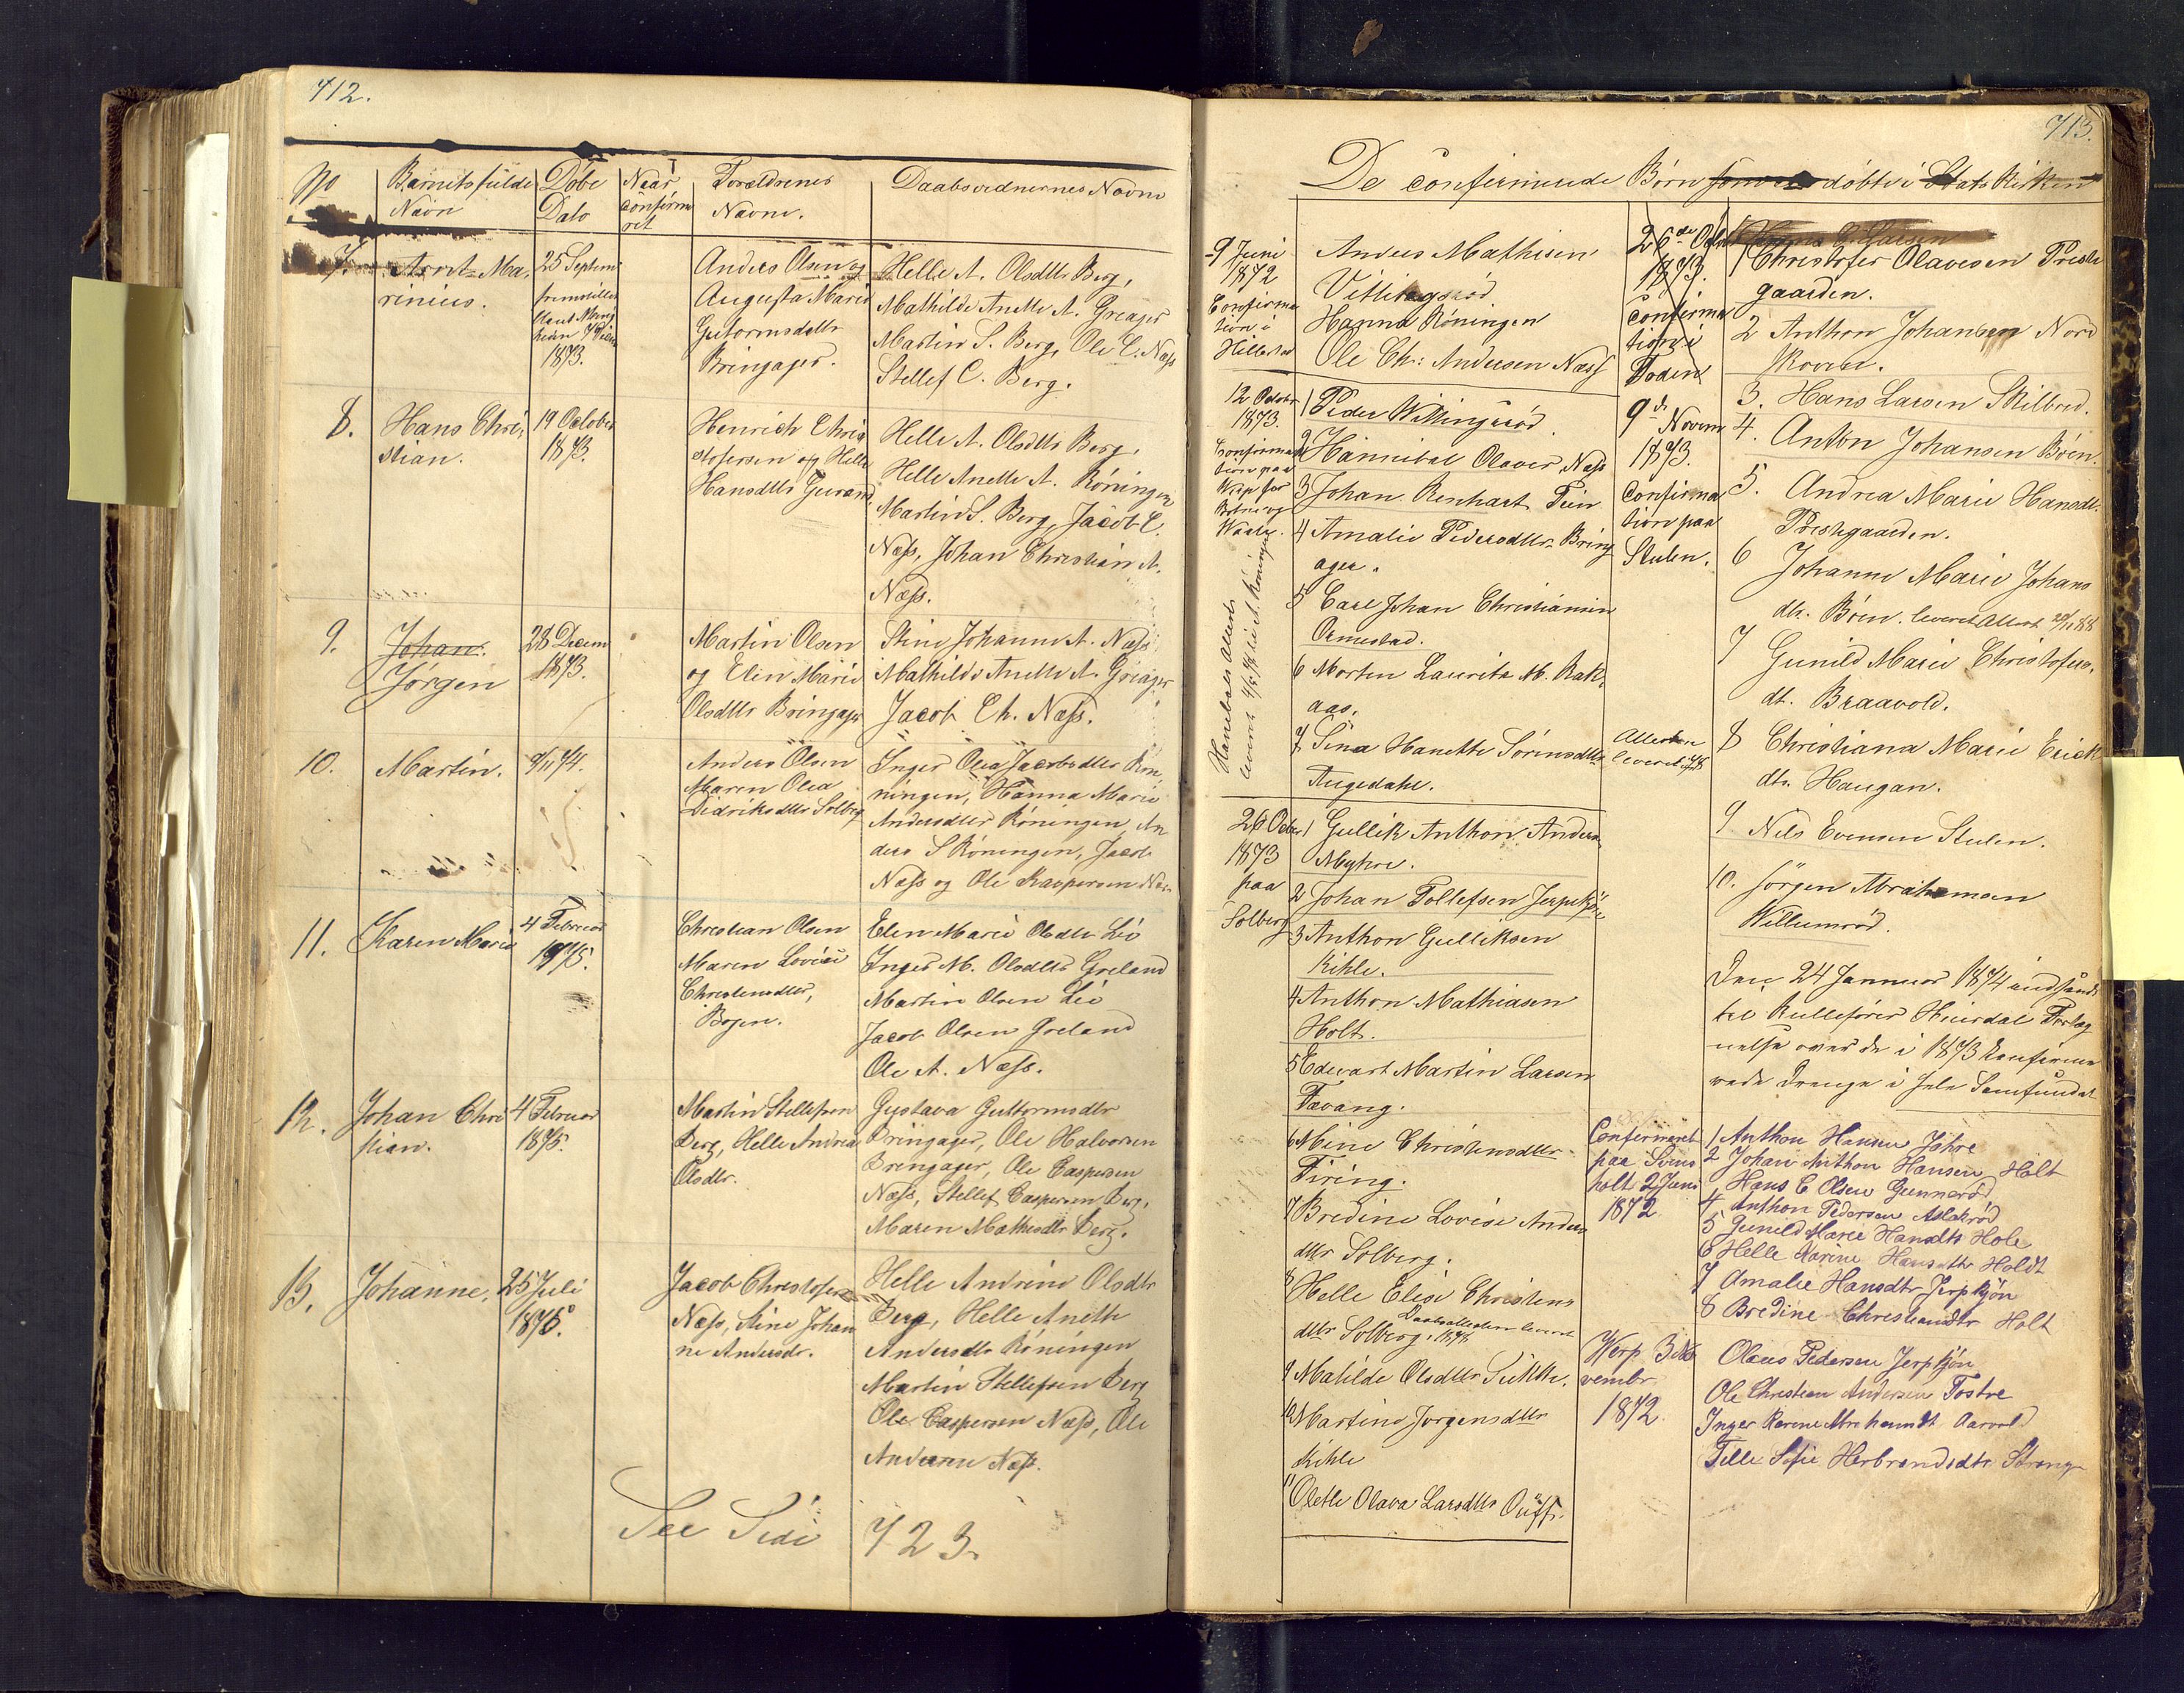 712.
No
Barnets fulde Navn
Døbe Dato
Naar confirmeret
Forældrenes Navne.
Daabsvidnernes Navne
7.
Arnt Ma-
rinius.
25 Septem
fremstillet
1873.
Anders Olsen og
Augusta Marie
Gutormsdatter
Bringager.
Helle A. Olsdttr Berg,
Mathilde Anette A. Greager
Martin S. Berg, Ole C. Næss
Stellef C. Berg.
8.
Hans Chri-
stian.
19 October
1873.
Henrich Chri
stofersen og Helle
Hansdttr
Helle A. Olsdttr Berg,
Helle Anette A. Røningen
Martin S. Berg, Jacob C.
Næss, Johan Christian A.
Næss.
9.
Johan
Jørgen
28 Decem
1873.
Martin Olsen
og Elen Marie
Olsdttr Bringager
Stine Johanne A. Næss
Mathilde Anette A. Greager
Jacob Ch. Næss.
10.
Martin.
Anders Olsen
Maren Olea
Didriksdttr Solberg
Inger Olea Jacobsdttr Røn
ningen, Hanna Marie
Andersdttr Røningen, An
ders S Røningen, Jacob
Næss og Ole Kaspersen
11.
Karen Marie
4 Februar
1875.
Christian Olsen
Maren Lovise
Christensdttr,
Bogen.
Elen Marie Olsdttr Lie
Inger M. Olsdttr Greland
Martin Olsen Lie
Jacob Olsen Greland
Ole A. Næss.
12.
Johan Chri
stian.
4 Februar
1875.
Martin Stellefsen
Berg, Helle Andrea
Olsdtr.
Gustava Guttormsdtr
Bringager, Ole Halvorsen
Bringager, Ole Caspersen
Næss, Stellef Caspersen Berg,
Maren Mathisdtr Berg.
13.
Johanne.
25 Juli
1875.
Jacob Christofersen
Næss, Stine Johan
ne Andersdr.
Helle Andrine Olsdtr
Berg, Helle Anette
Andersdtr Røningen
Martin Stellefsen Berg
Ole Caspersen Næss, Ole
Andersen Næss.
See Side 723.
713.
De confirmerede Børn døbte i Stats Kirken
9 Juni
1872
Confirma
tion i
Hillestad
Anders Mathisen
Hanna Røningen
Ole Chr: Andersen Næss
12 Octobr
1873.
Confirma
tion paa
1 Peder Wittingsrød.
2 Hannibal Olaves Næss
3 Johan Renhart
4 Amalie Pedersdttr Bring
ager.
5 Carl Johan Christiansen
Ormestad.
6 Morten Laurits M. Rak-
aas.
7 Sina Hanette Sørensdttr
Augedahl.
26 Octbr
1873
paa
Solberg
1 Gullik Anthon Anders
Myhre.
2 Johan Tollefsen Jerpekjøn
3 Anthon Gulliksen
Kihle.
4 Anthon Mathiasen
Holt.
5 Edevart Martin Larsen
Tævang.
6 Mine Christensdttr
Firing.
7 Bredine Lovise Anders
dttr Solberg.
8 Helle Elise Christens
dttr Solberg.
9 Matilde Olsdttr
10 Martine Jørgensdttr
Kihle
11 Olette Olava Larsdttr
26de Octbr
1873.
Confirma
tion i
Boden
1 Christofer Olavesen Preste
gaarden.
2 Anthon Johansen Nord
skoven.
9de Novem
1873.
Confirma
tion paa
Stulen.
3. Hans Larsen Skilbred.
4. Anton Johansen Bøen.
5. Andrea Marie Hansdt.
Prestegaarden.
6 Johanne Marie Johans
dtr. Bøen. leveret Attest
7 Gunild Marie Christofers.
dt. Braavold.
Attesten
leveret
8 Christiana Marie Erick
dtr. Haugan.
9 Nils Evensen Stulen.
10. Jørgen Abrahamsen
Willumrød.
Den 24 Januar 1874 indsendt
til Rullefører HeierdalForteg
nelse over de i 1873 konfirme
rede Drenge i Jelse Samfundet
Confirmeret
paa Svins
holt 2 Juni
1872
1 Anthon Hansen Johre
2 Johan Anthon Hansen Holt
Hans C Olsen Gunnerød
4 Anthon Pedersen Aslakrød
5 Gunild Marie Hansdtr Hole
6 Helle Karine Hansdtr Holdt
7 Amalie Hansdtr Jerpkjøn
8 Bredine Christiansdtr Holt
Werp 3 No
vembr
1872.
Olaus Pedersen Jerpkjøn
Ole Christian Andersen Tostre
Inger Karine Abrahamsdt Aarvold
Tille Sofie Herbrandsdtr Strange